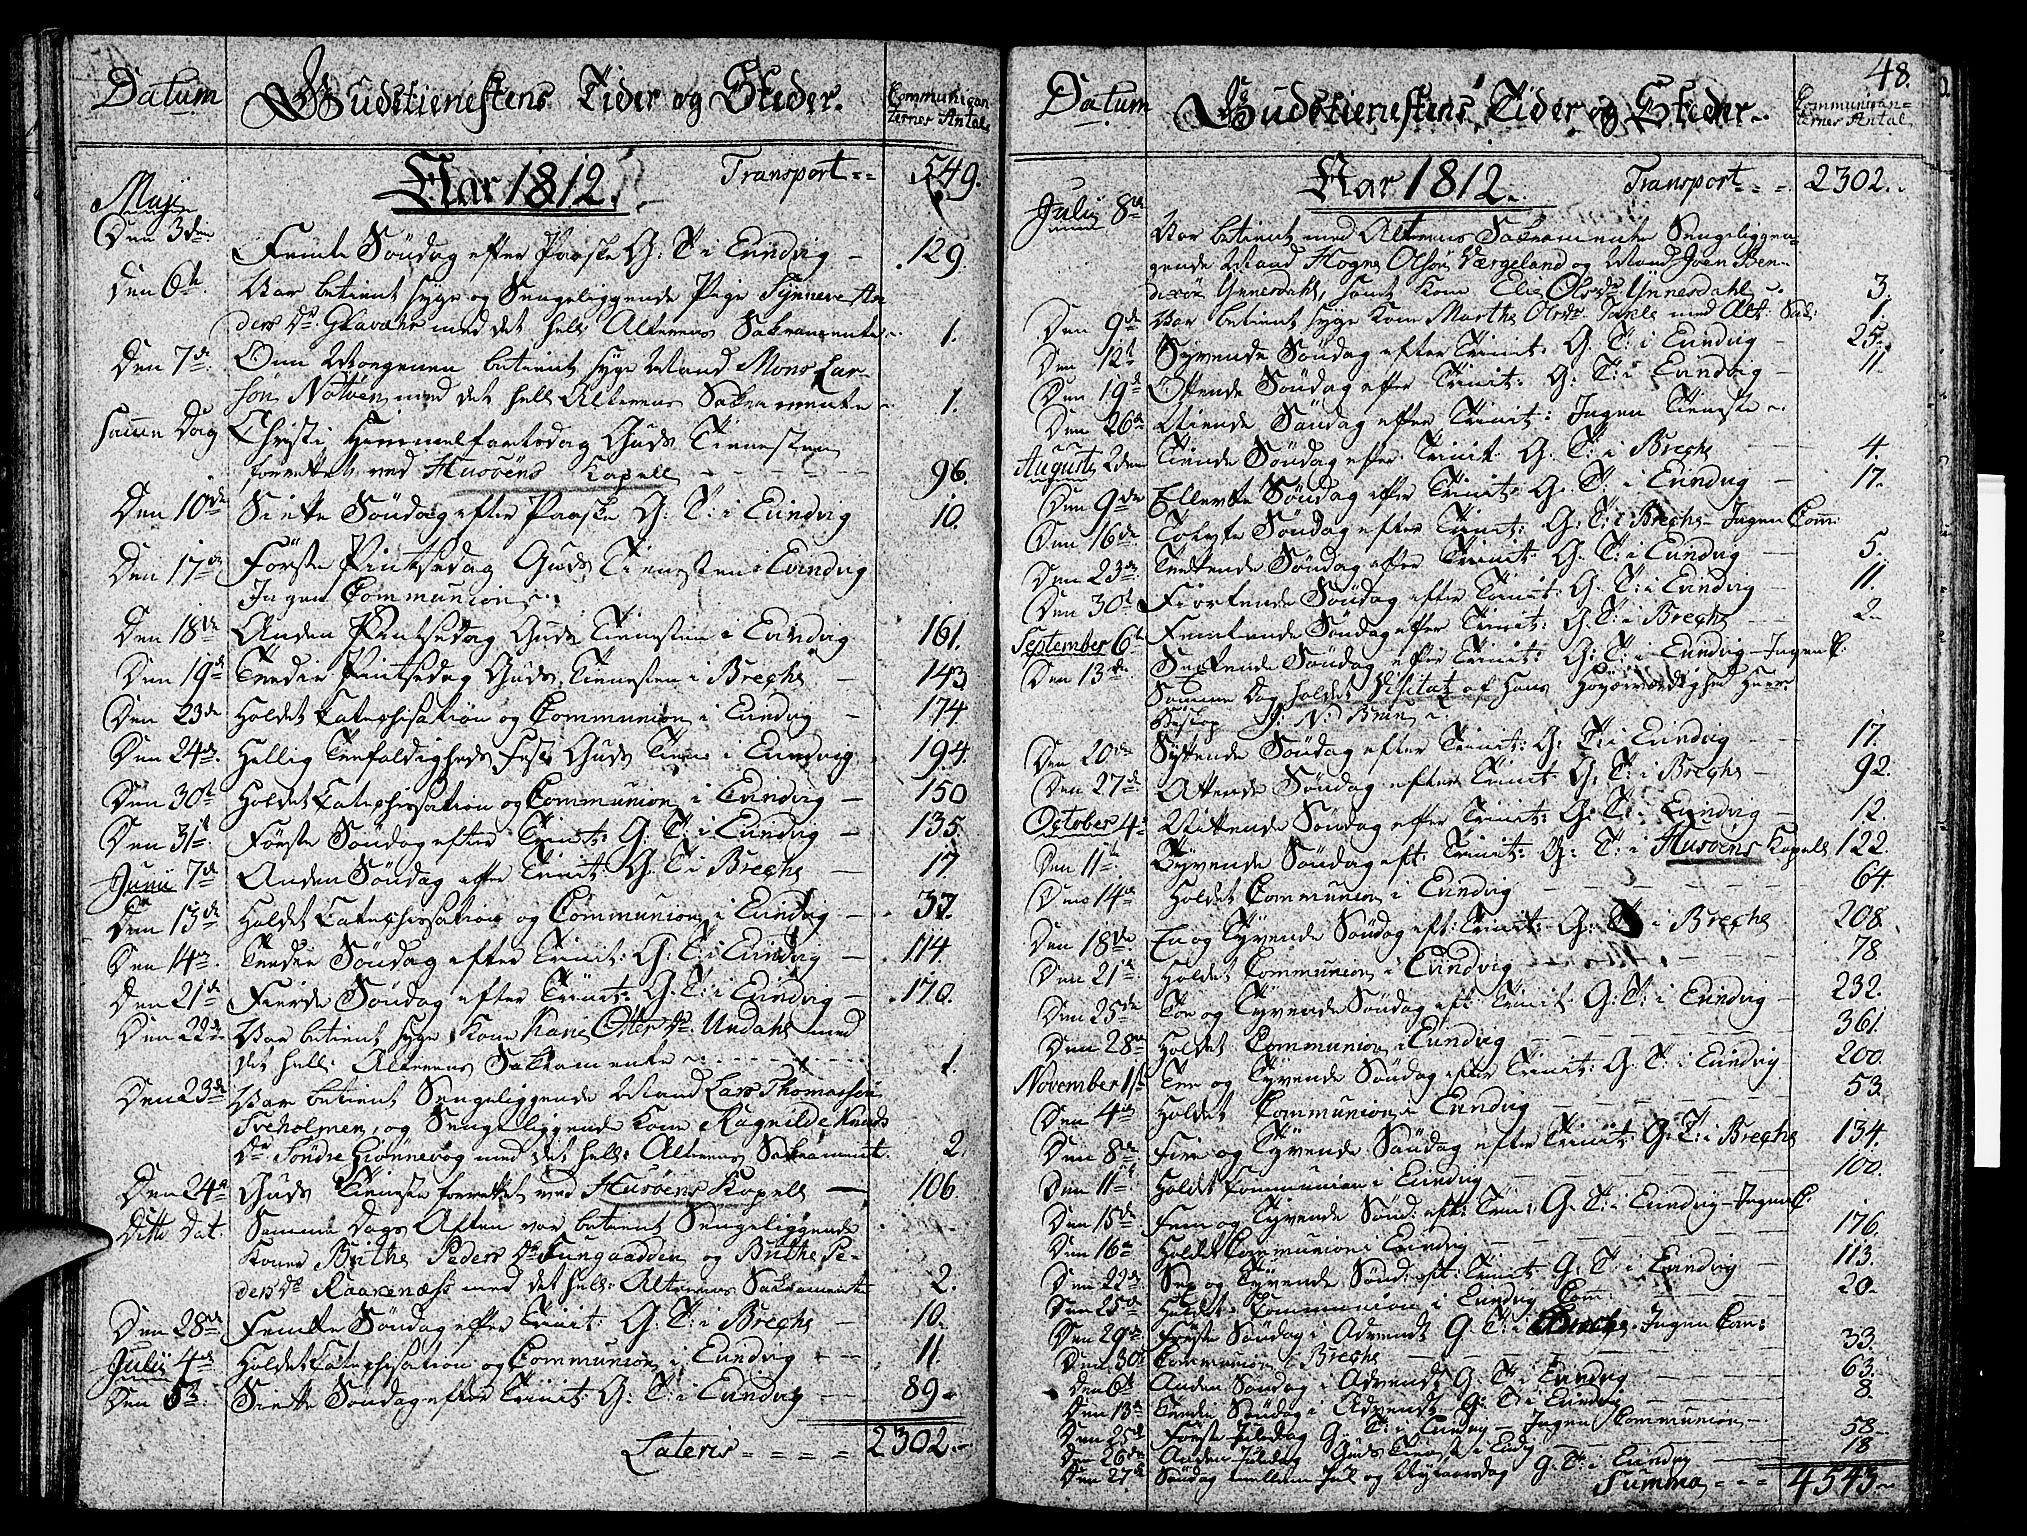 Datum
Gudstienestens Tider og Steder.
Communigan
ternes Antal
Aar 1812.
Transport
549.
Maji
Den 3den
Femte Söndag efter Paaske G: T: i Eundvig
129.
Den 6te
Var betient syge og Sengeliggende Pige Synneve An
ders Dr. Glavahr med det hell: Alterens Sakramente
1.
Den 7de
Om Morgenen betient syge Mand Mons Lar-
sön Nötven med det hell: Alterens Sakramente
1.
Samme Dag
Christi Himmelfartsdag Guds Tienesten
forrettet ved Husöens Kapell
96.
Den 10de
Siette Söndag efter Paaske G: T: i Eundvig
10.
Den 17de
Förste Pintsedag Guds Tienesten i Evindvig
Ingen Communion
Den 18de
Anden Pintsedag Guds Tienesten i Evindvig
161.
Den 19de
Tredie Pintsedag Guds Tienesten i Brechs
143
Den 23de
Holdet Catechisation og Communion i Eundvig
174.
Den 24de
Hellig Trefoldigheds Fest Guds Tien: i Eundvig
194.
Den 30te
Holdet Catechisation og Communion i Evindvig
150
Den 31te
Förste Söndag efter Trinit: G: T: i Eundvig
135.
Junii 7de
Anden Söndag efter Trinit: G: T: i Brechs
17
Den 13de
Holdet Catechisation og Communion i Eundvig
37.
Den 14de
Tredie Söndag efter Trinit: G: T: i Eundvig
114.
Den 21de
Fierde Söndag efter Trinit: G: T: i Eundvig
170.
Den 22de
Var betient syge Kone Karie Oters Dr. Undahl med
det hell: Alterens Sakramente
1.
Den 23de
Var betient Sengeliggende Mand Lars Thomassön
Tveholmen, og Sengeliggende Kone Ragnilde Knuds
Dr Söndre Giönnevog med det hell: Alterens Sakrament.
2
Den 24de
Guds Tieneste forrettet ved Husöens Kapell
106
Ditto Dat.
Samme Dags Aften var betient Sengeliggende
Koner Brithe Peders Dr. og Brithe Pe-
ders Dr. med det hell: Alterens Sakramente
2.
Den 28de
Femte Söndag efter Trinit: G: T: i Brechs
10.
Julii 4de
Holdet Catechisation og Communion i Eundvig
11.
Den 5te
Siette Söndag efter Trinit: G: T: i Eundvig
89
Lateris
2302.
48.
Datum
Gudstienestens Tider og Steder.
Communigan-
ternes Antal
Aar 1812.
Transport
2302.
Julii 8de
Var betient med Alterens Sakramente Sengeliggen-
gende Mand Hogne Olsön Værgeland og Mand Joen Ben-
dixön Ynnesdahl, samt Kone Elie Ols Dr Ynnesdahl
3.
Den 9de
Var betient syge Kone Marthe Ols Dr Takle med Alt: Sak:
1.
Den 12te
Syvende Söndag efter Trinit: G: T: i Eundvig
25.
Den 19de
Ottende Söndag efter Trinit: G: T: i Evindvig
11.
Den 26de
Niende Söndag efter Trinit: Ingen Tieneste
Augusti 2den
Tiende Söndag efter Trinit: G: T: i Brechs
4.
Den 9de
Ellevte Söndag efter Trinit: G: T: i Evindvig
17.
Den 16de
Tolvte Söndag efter Trinit: G: T: i Brechs - Ingen Com:
Den 23de
Trettende Söndag efter Trinit: G: T: i Eundvig
5.
Den 30te
Fiortende Söndag efter Trinit: G: T: i Eundvig
11.
September 6te
Femtende Söndag efter Trinit: G: T: i Brechs
2.
Den 13de
Sextende Söndag efter Trinit: G: T: i Eundvig - Ingen C.
Samme Dag holdet Visitaz af Hans Höyærværdighed Herr
Biskop J: N: Brun
Den 20de
Syttende Söndag efter Trinit: G: T: i Eundvig
17.
Den 27de
Attende Söndag efter Trinit: G: T: i Brechs
92.
October 4de
Nittende Söndag efter Trinit: G: T: i Evindvig
12.
Den 11te
Tyvende Söndag eft: Trinit: G: T: i Husöens Kapell
122.
Den 14de
Holdet Communion i Eundvig
64.
Den 18de
En og Tyvende Söndag eft: Trinit: G: T: i Brechs
208.
Den 21de
Holdet Communion i Evindvig
78.
Den 25de
Toe og Tyvende Söndag eft: Trinit: G: T: i Eundvig
232.
Den 28de
Holdet Communion i Eundvig
361.
November 1ste
Tre og Tyvende Söndag efter Trinit: G: T: i Eundvig
200.
Den 4de
Holdet Communion i Eundvig
53.
Den 8de
Fire og Tyvende Söndag efter Trinit: G: T: i Brechs
134.
Den 11te
Holdet Communion i Eundvig
100.
Den 15de
Fem og Tyvende Sönd: eft: Trin: G: T: i Eundvig - Ingen C:
Den 16de
Holdet Communion i Eundvig
176.
Den 22de
Sex og Tyvende Sönd: eft: Trinit: G: T: i Evindvig
113.
Den 25de
Holdet Communion i Eundvig
20.
Den 29de
Förste Söndag i Advendt G: T: i Brechs. Ingen Com:
Den 30te
Communion i Brechs
33.
Den 6te
Anden Söndag i Advendt G: T: i Evindvig
63.
Den 13de
Tredie Söndag i Advendt G: T: i Eundvig
8.
Den 25de
Förste Juledag G: T: i Eundvig - Ingen Communion
Den 26de
Anden Juledag Guds Tieneste i
58
Den 27de
Söndag mellem Jul og Nytaarsdag G: T: i Eundvig
18
Summa
4543.